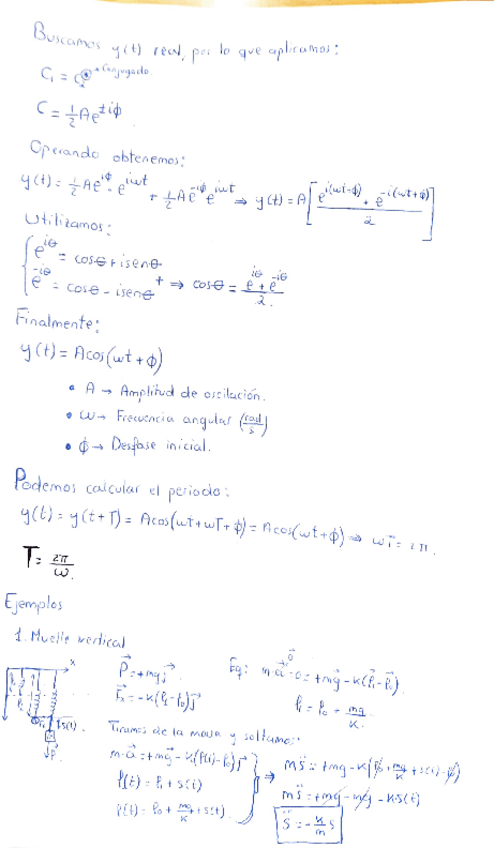 Buscamos y(t) real, por lo que aplicamos:
C₁ = C₂* *Conjugado
C = ½Ae^{±iϕ}
Operando obtenemos:
y(t) = ½Ae^{iϕ}·e^{iωt} + ½Ae^{-iϕ}e^{iωt} ⇒ y(t) = A[(e^{i(ωt+ϕ)} + e^{-i(ωt+ϕ)})/2]
Utilizamos:
{ e^{iθ} = cosθ + isenθ
{ e^{-iθ} = cosθ - isenθ + ⇒ cosθ = (e^{iθ} + e^{-iθ})/2.
Finalmente:
y(t) = Acos(ωt + ϕ)
• A → Amplitud de oscilación.
• ω → Frecuencia angular (rad/s)
• ϕ → Desfase inicial.
Podemos calcular el periodo:
y(t) = y(t+T) = Acos(ωt+ωT+ϕ) = Acos(ωt+ϕ) ⇒ ωT = 2π.
T = 2π/ω.
Ejemplos
1. Muelle vertical
x
s(t)
P⃗ = +mgj⃗ Eq: m·a⃗ = 0 = +mg⃗ - k(l₁-l₀).
-k(l₁-l₀)j⃗ l₁ = l₀ + mg/k.
Tiramos de la masa y soltamos:
m·a⃗ = +mg⃗ - k(l(t)-l₀)j⃗ ⇒ ms̈ = +mg - k(l₀ + mg/k + s(t) - l₀)
l(t) = l₁ + s(t) ms̈ = +mg - mg - k·s(t)
l(t) = l₀ + mg/k + s(t) s̈ = -k/m s